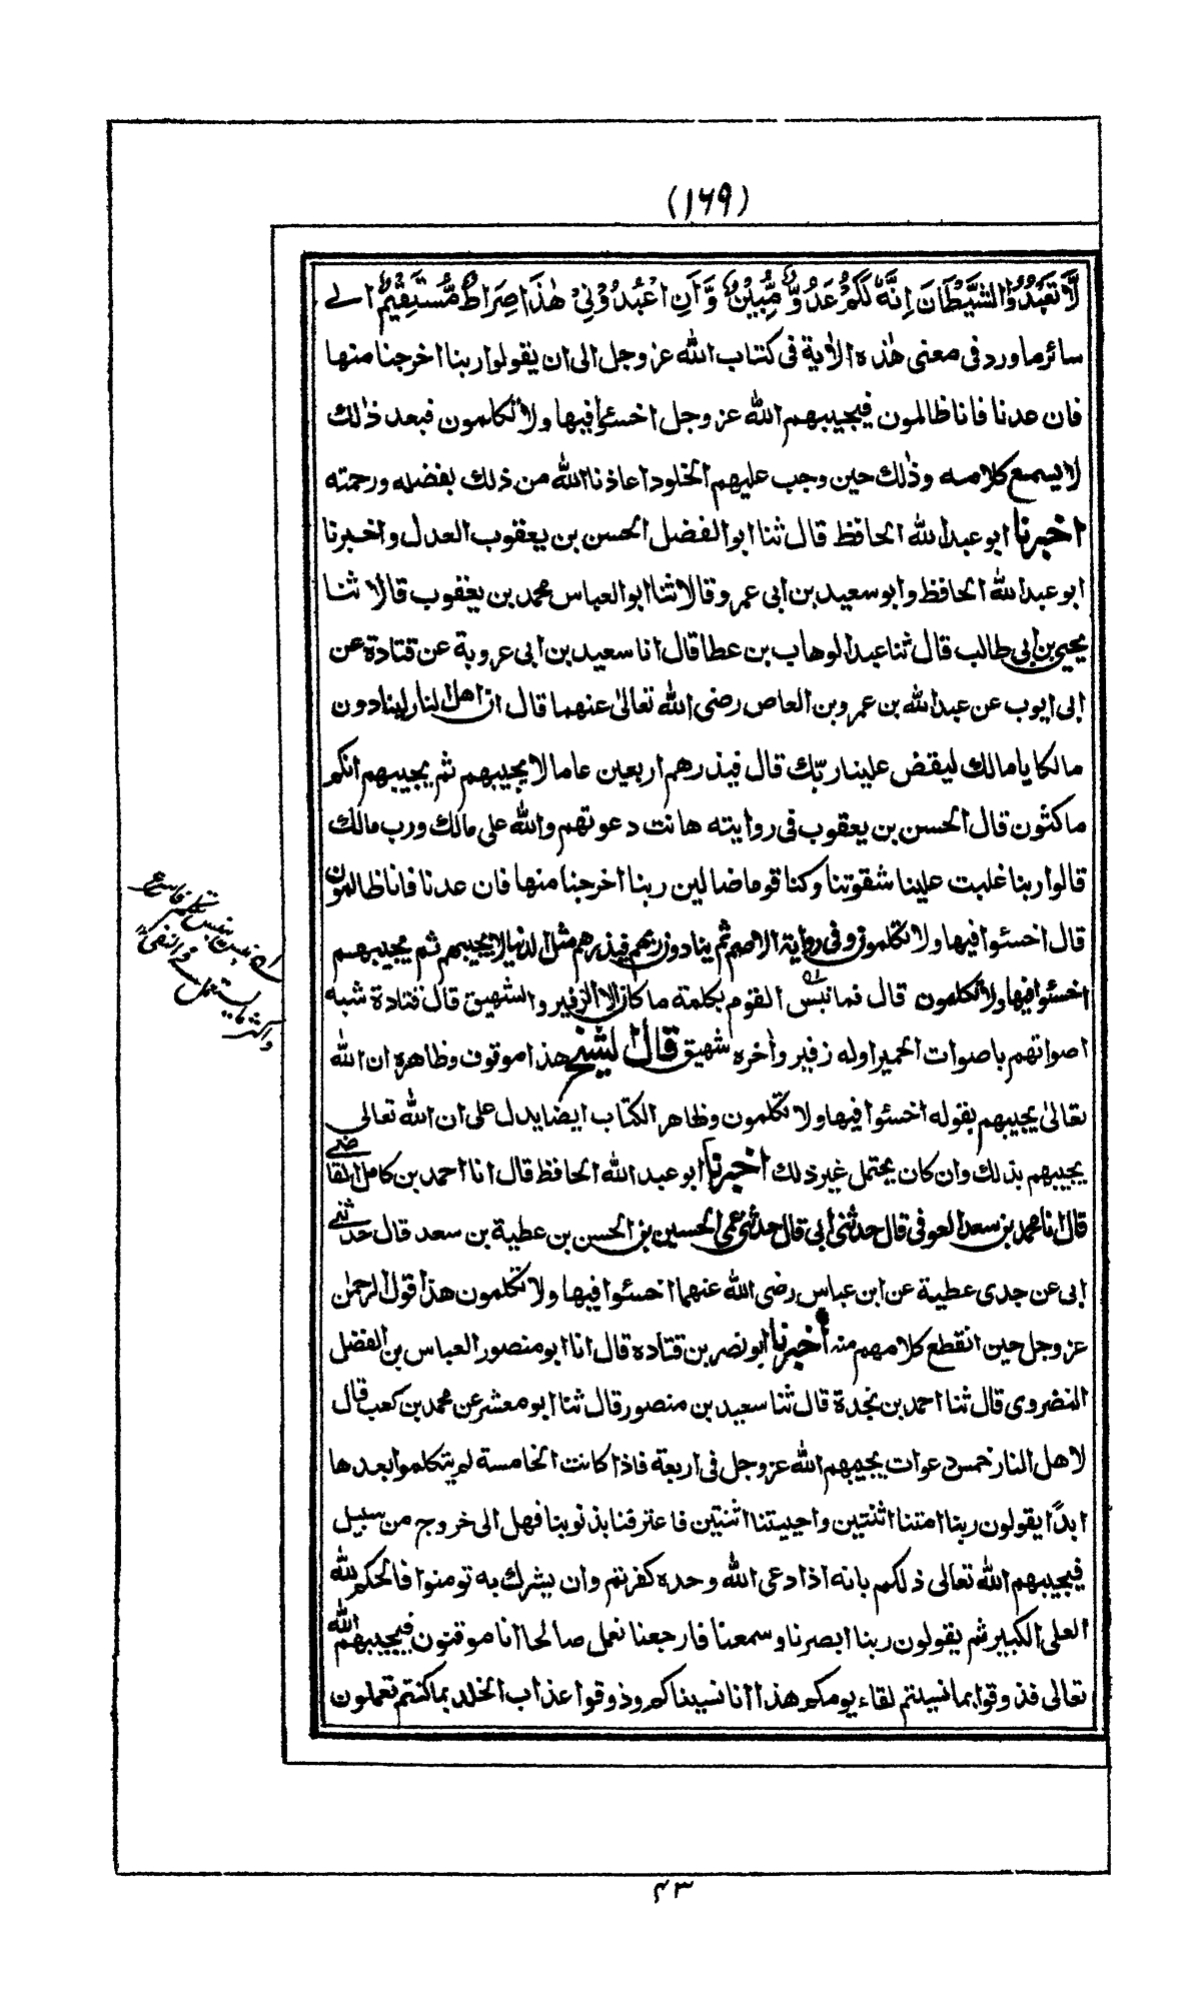 (١٦٩)
لَّا تَعْبُدُوا الشَّيْطَانَ اِنَّهُ لَكُمْ عَدُوٌّ مُّبِيْنٌ وَّاَنِ اعْبُدُوْنِيْ هٰذَا صِرَاطٌ مُّسْتَقِيْمٌ الى
سائر ما ورد فى معنى هٰذه الاٰية فى كتاب الله عز وجل الى ان يقولوا ربنا اخرجنا منها
فان عدنا فانا ظالمون فيجيبهم الله عز وجل اخسئوا فيها ولا تكلمون فبعد ذٰلك
لا يسمع كلامه وذٰلك حين وجب عليهم الخلود اعاذنا الله من ذلك بفضله ورحمته
اخبرنا ابو عبد الله الحافظ قال ثنا ابو الفضل الحسن بن يعقوب العدل واخبرنا
ابو عبد الله الحافظ وابو سعيد بن ابى عمرو قالا ثنا ابو العباس محمد بن يعقوب قالا ثنا
يحيى بن ابى طالب قال ثنا عبد الوهاب بن عطا قال انا سعيد بن ابى عروبة عن قتادة عن
ابى ايوب عن عبد الله بن عمرو بن العاص رضى الله تعالىٰ عنهما قال ان اهل النار لينادون
مالكا يا مالك ليقض علينا ربّك قال فيذرهم اربعين عاما لا يجيبهم ثم يجيبهم انكم
ماكثون قال الحسن بن يعقوب فى روايته هانت دعوتهم والله على مالك ورب مالك
قالوا ربنا غلبت علينا شقوتنا وكنا قوما ضالين ربنا اخرجنا منها فان عدنا فانا ظالمون
قال اخسئوا فيها ولا تكلمون وفى رواية الاصم ثم ينادون ربهم فيذرهم مثل الدنيا لا يجيبهم ثم يجيبهم
اخسئوا فيها ولا تكلمون قال فما نبس القوم بكلمة ما كان الا الزفير والشهيق قال قتادة شبه
اصواتهم باصوات الحمير اوله زفير واٰخره شهيق قال الشيخ هذا موقوف وظاهره ان الله
تعالىٰ يجيبهم بقوله اخسئوا فيها ولا تكلمون وظاهر الكتاب ايضا يدل على ان الله تعالى
يجيبهم بذلك وان كان يحتمل غير ذلك اخبرنا ابو عبد الله الحافظ قال انا احمد بن كامل القاضى
قال انا محمد بن سعد العوفى قال حدثنى ابى قال حدثنى عمى الحسين بن الحسن بن عطية بن سعد قال حدثنى
ابى عن جدى عطية عن ابن عباس رضى الله عنهما اخسئوا فيها ولا تكلمون هذا قول الرحمٰن
عز وجل حين انقطع كلامهم منه اخبرنا ابو نصر بن قتادة قال انا ابو منصور العباس بن الفضل
النضروى قال ثنا احمد بن نجدة قال ثنا سعيد بن منصور قال ثنا ابو معشر عن محمد بن كعب قال
لاهل النار خمس دعوات يجيبهم الله عز وجل فى اربعة فاذا كانت الخامسة لم يتكلموا بعدها
ابدًا يقولون ربنا امتنا اثنتين واحييتنا اثنتين فاعترفنا بذنوبنا فهل الى خروج من سبيل
فيجيبهم الله تعالى ذلكم بانه اذا دعى الله وحده كفرتم وان يشرك به تومنوا فالحكم لله
العلى الكبير ثم يقولون ربنا ابصرنا وسمعنا فارجعنا نعمل صالحا انا موقنون فيجيبهم الله
تعالى فذوقوا بما نسيتم لقاء يومكم هذا انا نسيناكم وذوقوا عذاب الخلد بما كنتم تعملون
واكثر ما يستعمل فى النفى
٤٣